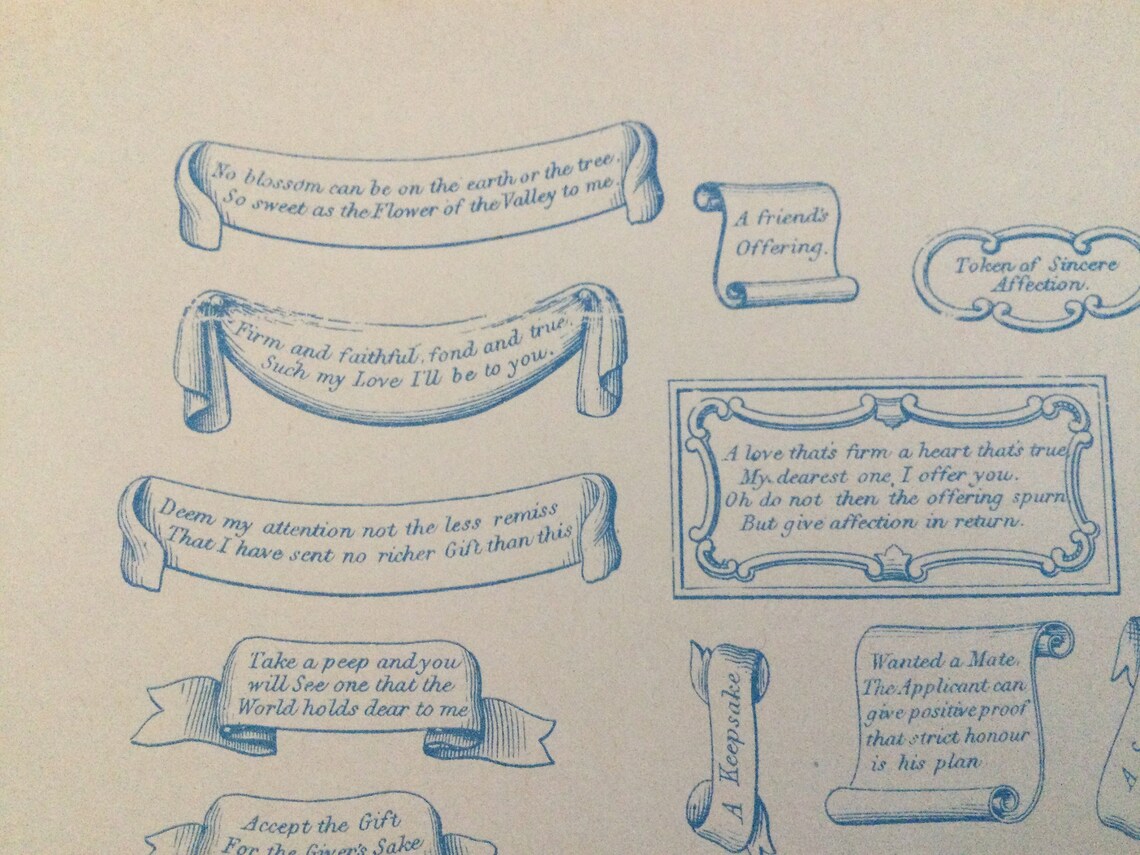 No blossom can be on the earth or the tree.
So sweet as the Flower of the Valley to me.
A friend's
Offering.
Token of Sincere
Affection.
Firm and faithful, fond and true.
Such my Love I'll be to you.
A love that's firm a heart that's true
My dearest one, I offer you.
Oh do not then the offering spurn
But give affection in return.
Deem my attention not the less remiss
That I have sent no richer Gift than this
Take a peep and you
will See one that the
World holds dear to me
A Keepsake
Wanted a Mate,
The Applicant can
give positive proof
that strict honour
is his plan
Accept the Gift
For the Giver's Sake